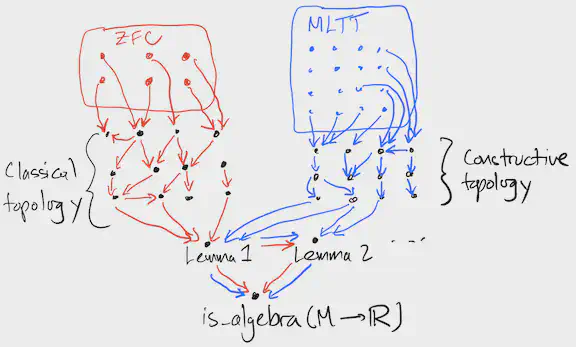 ZFC
MLTT
Classical
topology
Constructive
topology
Lemma 1
Lemma 2
is_algebra(M→ℝ)